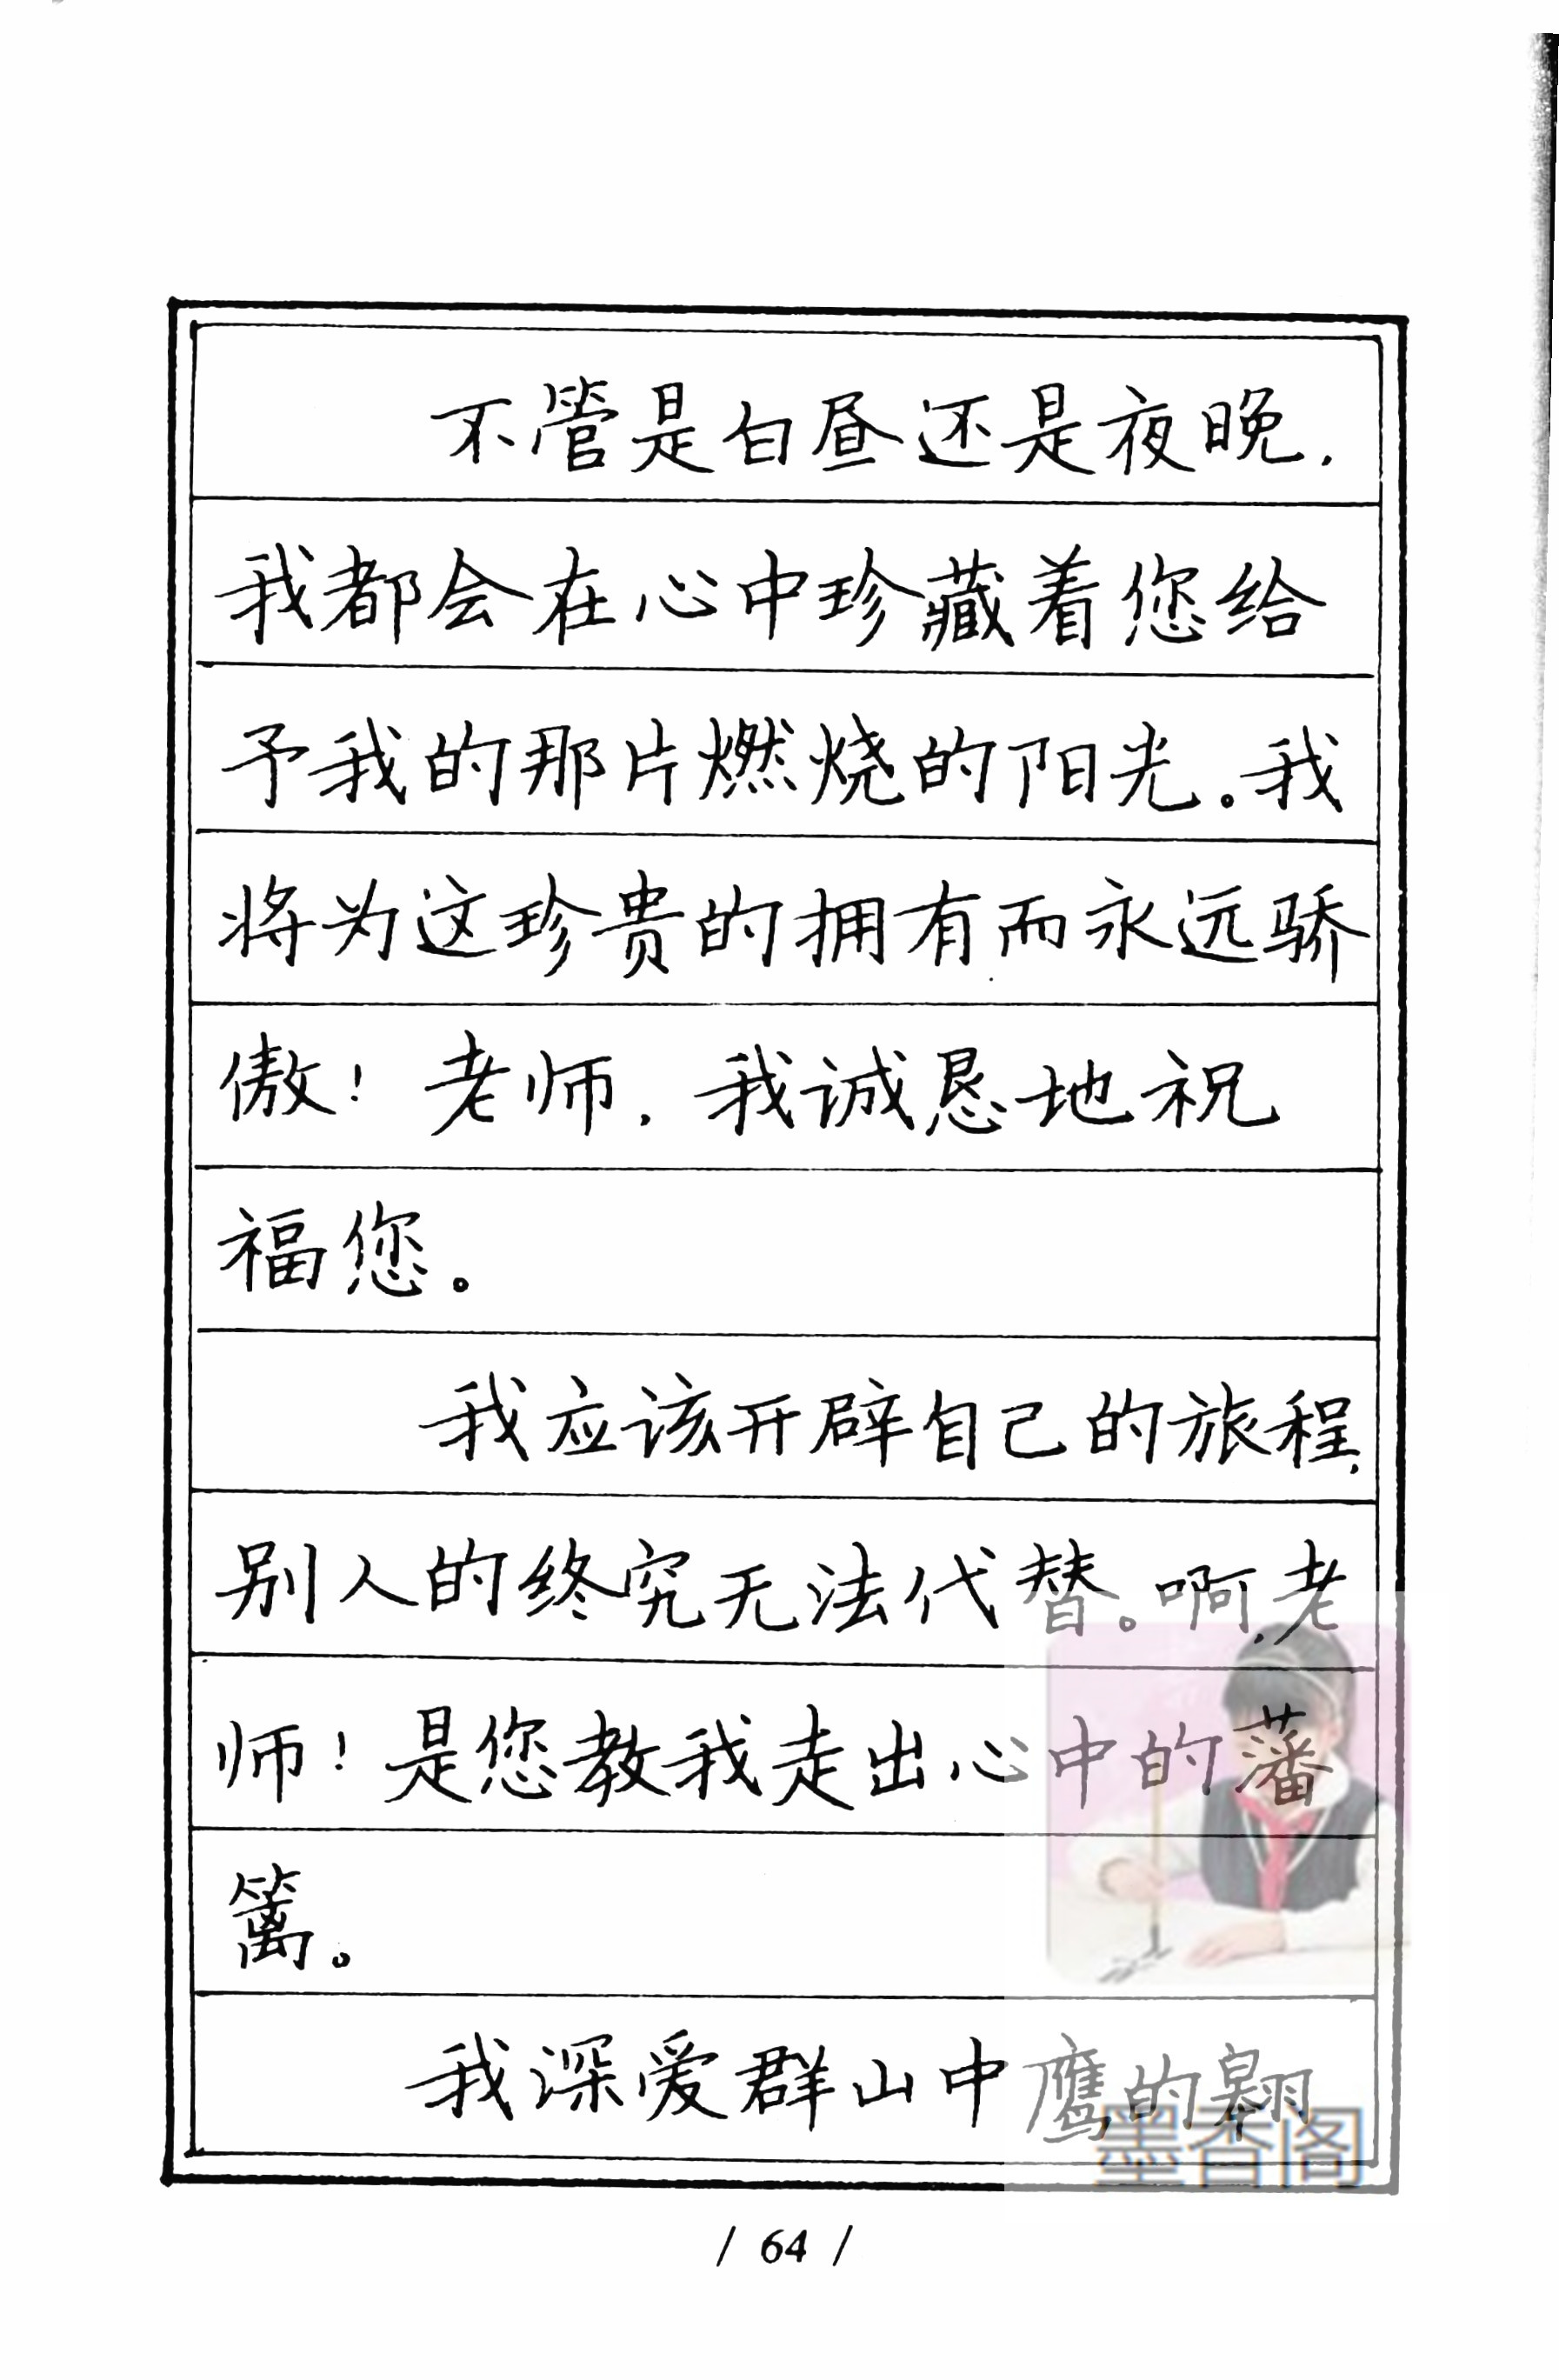 不管是白昼还是夜晚,
我都会在心中珍藏着您给
予我的那片燃烧的阳光。我
将为这珍贵的拥有而永远骄
傲！老师,我诚恳地祝
福您。
我应该开辟自己的旅程,
别人的终究无法代替。啊,老
师！是您教我走出心中的藩
篱。
我深爱群山中鹰的翱
墨香阁
/ 64 /